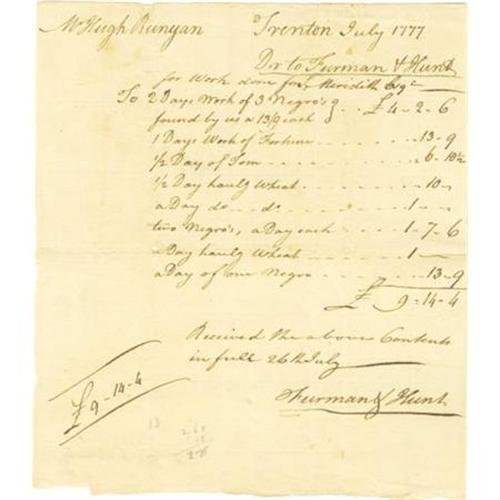 Mr Hugh Runyan Trenton July 1777
Dr to Furman & Hunt
for Work done for Meredith Esqr
To 2 Days Work of 3 Negro's } .. £4-2-6
found by us a 13/9 each
1 Days Work of Fortune .... 13-9
1/2 Day of Tom .... 6-10 1/2
1/2 Day haulg Wheat .... 10-
a Day do do .... 1--
two Negro's, a Day each ... 1-7-6
a Day haulg Wheat ... 1--
a Day of one Negro .... 13-9
£ 9-14-4
Received the above Contents
in full 26th July
Furman & Hunt
£9-14-4